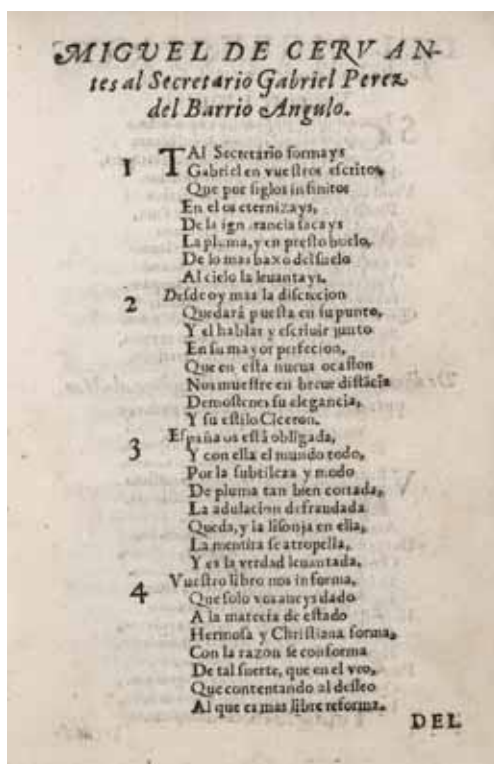 MIGVEL DE CERVAN-
tes al Secretario Gabriel Perez
del Barrio Angulo.
1 TAl Secretario formays
Gabriel en vuestros escritos,
Que por siglos infinitos
En el os eternizays,
De la ignorancia sacays
La pluma, y en presto buelo,
De lo mas baxo del suelo
Al cielo la leuantays.
2 Desde oy mas la discrecion
Quedará puesta en su punto,
Y el hablar y escriuir junto
En su mayor perfecion,
Que en esta nueua ocasion
Nos muestre en breue distãcia
Demostenes su elegancia,
Y su estilo Ciceron.
3 España os está obligada,
Y con ella el mundo todo,
Por la subtileza y modo
De pluma tan bien cortada,
La adulacion defraudada
Queda, y la lisonja en ella,
La mentira se atropella,
Y es la verdad leuantada.
4 Vuestro libro nos informa,
Que solo vos aueys dado
A la materia de estado
Hermosa y Christiana forma,
Con la razon se conforma
De tal suerte, que en el veo,
Que contentando al desseo
Al que es mas libre reforma.
DEL